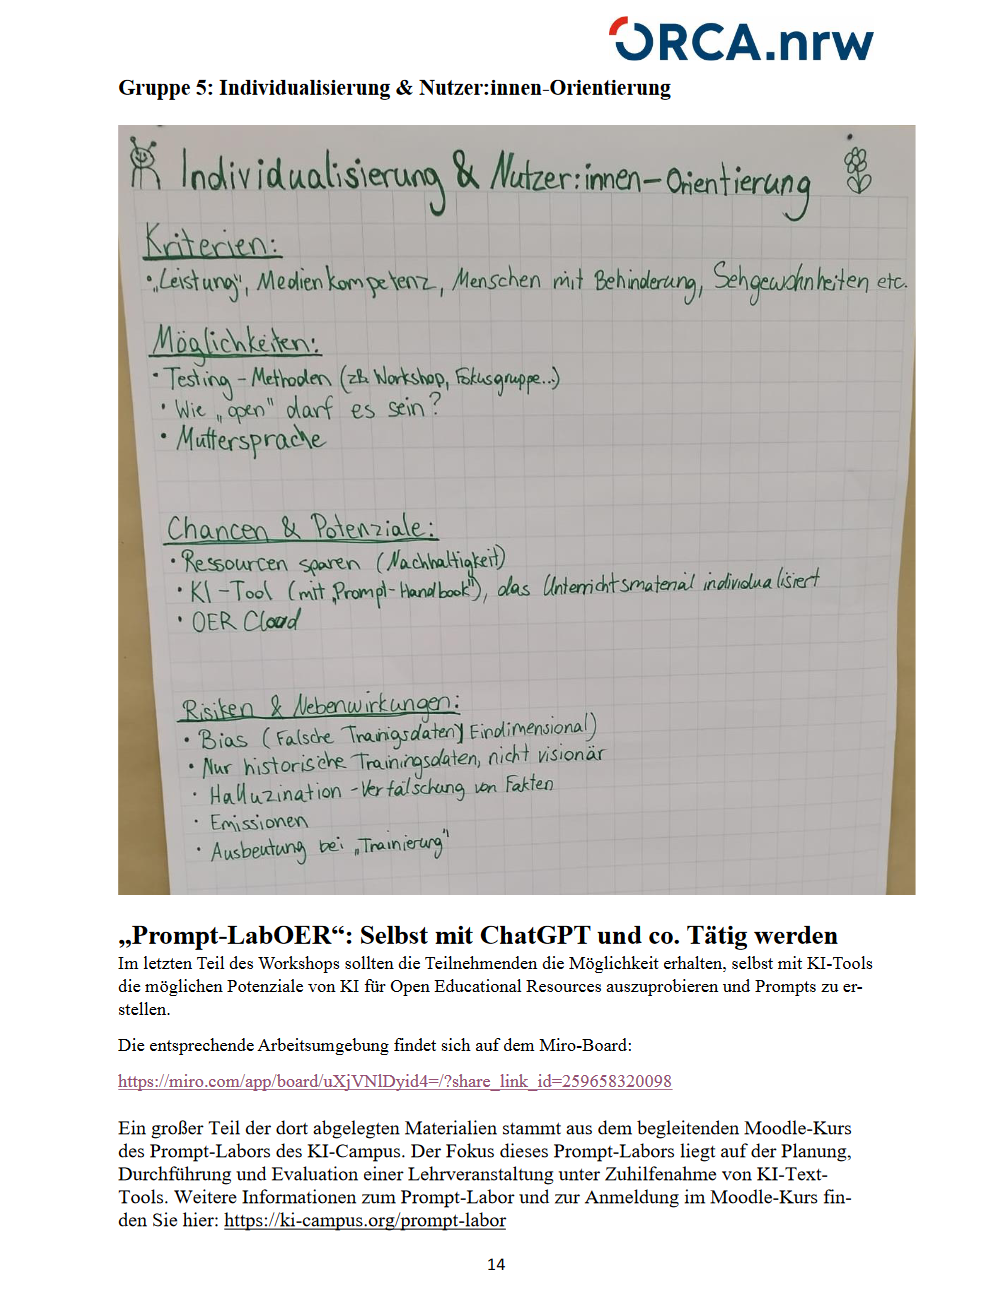 ORCA.nrw
Gruppe 5: Individualisierung & Nutzer:innen-Orientierung
Individualisierung & Nutzer:innen-Orientierung
Kriterien:
• „Leistung", Medienkompetenz, Menschen mit Behinderung, Sehgewohnheiten etc.
Möglichkeiten:
• Testing-Methoden (zB Workshop, Fokusgruppe...)
• Wie „open" darf es sein?
• Muttersprache
Chancen & Potenziale:
• Ressourcen sparen (Nachhaltigkeit)
• KI-Tool (mit „Prompt-Handbook"), das Unterrichtsmaterial individualisiert
• OER Cloud
Risiken & Nebenwirkungen:
• Bias (Falsche Trainigsdaten) Eindimensional)
• Nur historische Trainingsdaten, nicht visionär
• Halluzination - Verfälschung von Fakten
• Emissionen
• Ausbeutung bei „Trainierung"
„Prompt-LabOER“: Selbst mit ChatGPT und co. Tätig werden
Im letzten Teil des Workshops sollten die Teilnehmenden die Möglichkeit erhalten, selbst mit KI-Tools
die möglichen Potenziale von KI für Open Educational Resources auszuprobieren und Prompts zu er-
stellen.
Die entsprechende Arbeitsumgebung findet sich auf dem Miro-Board:
https://miro.com/app/board/uXjVNlDyid4=/?share_link_id=259658320098
Ein großer Teil der dort abgelegten Materialien stammt aus dem begleitenden Moodle-Kurs
des Prompt-Labors des KI-Campus. Der Fokus dieses Prompt-Labors liegt auf der Planung,
Durchführung und Evaluation einer Lehrveranstaltung unter Zuhilfenahme von KI-Text-
Tools. Weitere Informationen zum Prompt-Labor und zur Anmeldung im Moodle-Kurs fin-
den Sie hier: https://ki-campus.org/prompt-labor
14